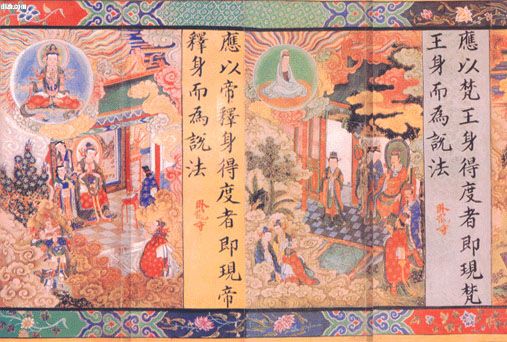 應以梵王身得度者即現梵
王身而為說法
應以帝釋身得度者即現帝
釋身而為說法